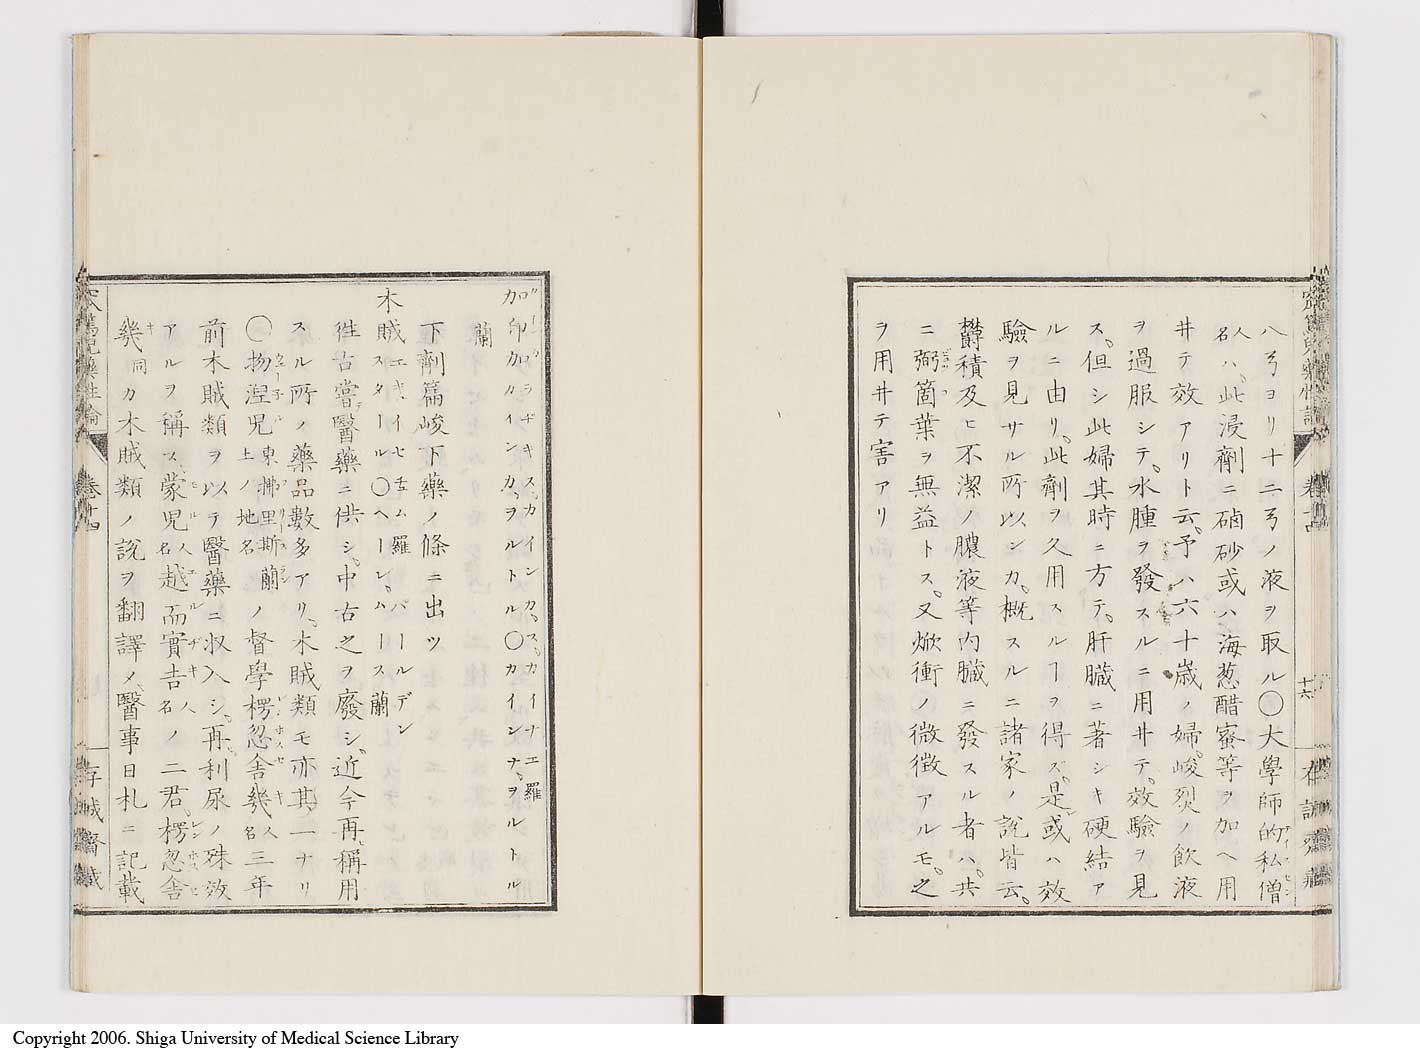 八弓ヨリ十二弓ノ液ヲ取ル〇大學師的私僧
人名ハ、此浸劑ニ硇砂或ハ海葱醋蜜等ヲ加ヘ用
井テ效アリト云、予ハ六十歳ノ婦、峻烈ノ飲液
ヲ過服シテ、水腫ヲ發スルニ用井テ、效驗ヲ見
ス、但シ此婦其時ニ方テ、肝臓ニ著シキ硬結ア
ルニ由リ、此劑ヲ久用スルヿヲ得ズ、是或ハ效
驗ヲ見サル所以ンカ、概スルニ諸家ノ説皆云、
欝積及ヒ不潔ノ膿液等内臓ニ發スル者ハ、共
ニ弼箇葉ヲ無益トス、又焮衝ノ微徴アルモ、之
ヲ用井テ害アリ
十六
加印加 ガラヂキス、カインカ、ス、カイナ エ羅
カインカ、ヲルトル〇カインナ、ヲルトル
蘭
下劑篇峻下藥ノ條ニ出ツ
木賊 エキイセチュム羅 バールデン
スタールル〇ヘールレ、ハース 蘭
徃古嘗テ醫藥ニ供シ、中古之ヲ廢シ、近今再、稱用
スル所ノ藥品數多アリ、木賊類モ亦其一ナリ
〇物涅児東拂里斯蘭土ノ地名ノ督學楞忽舎幾人名三年
前木賊類ヲ以テ醫藥ニ収入シ、再ヒ利尿ノ殊效
アルヲ稱ス、蒙児人名越而實吉人名ノ二君、楞忽舎
幾同カ木賊類ノ説ヲ翻譯ノ、醫事日札ニ記載
卷十四
Copyright 2006. Shiga University of Medical Science Library